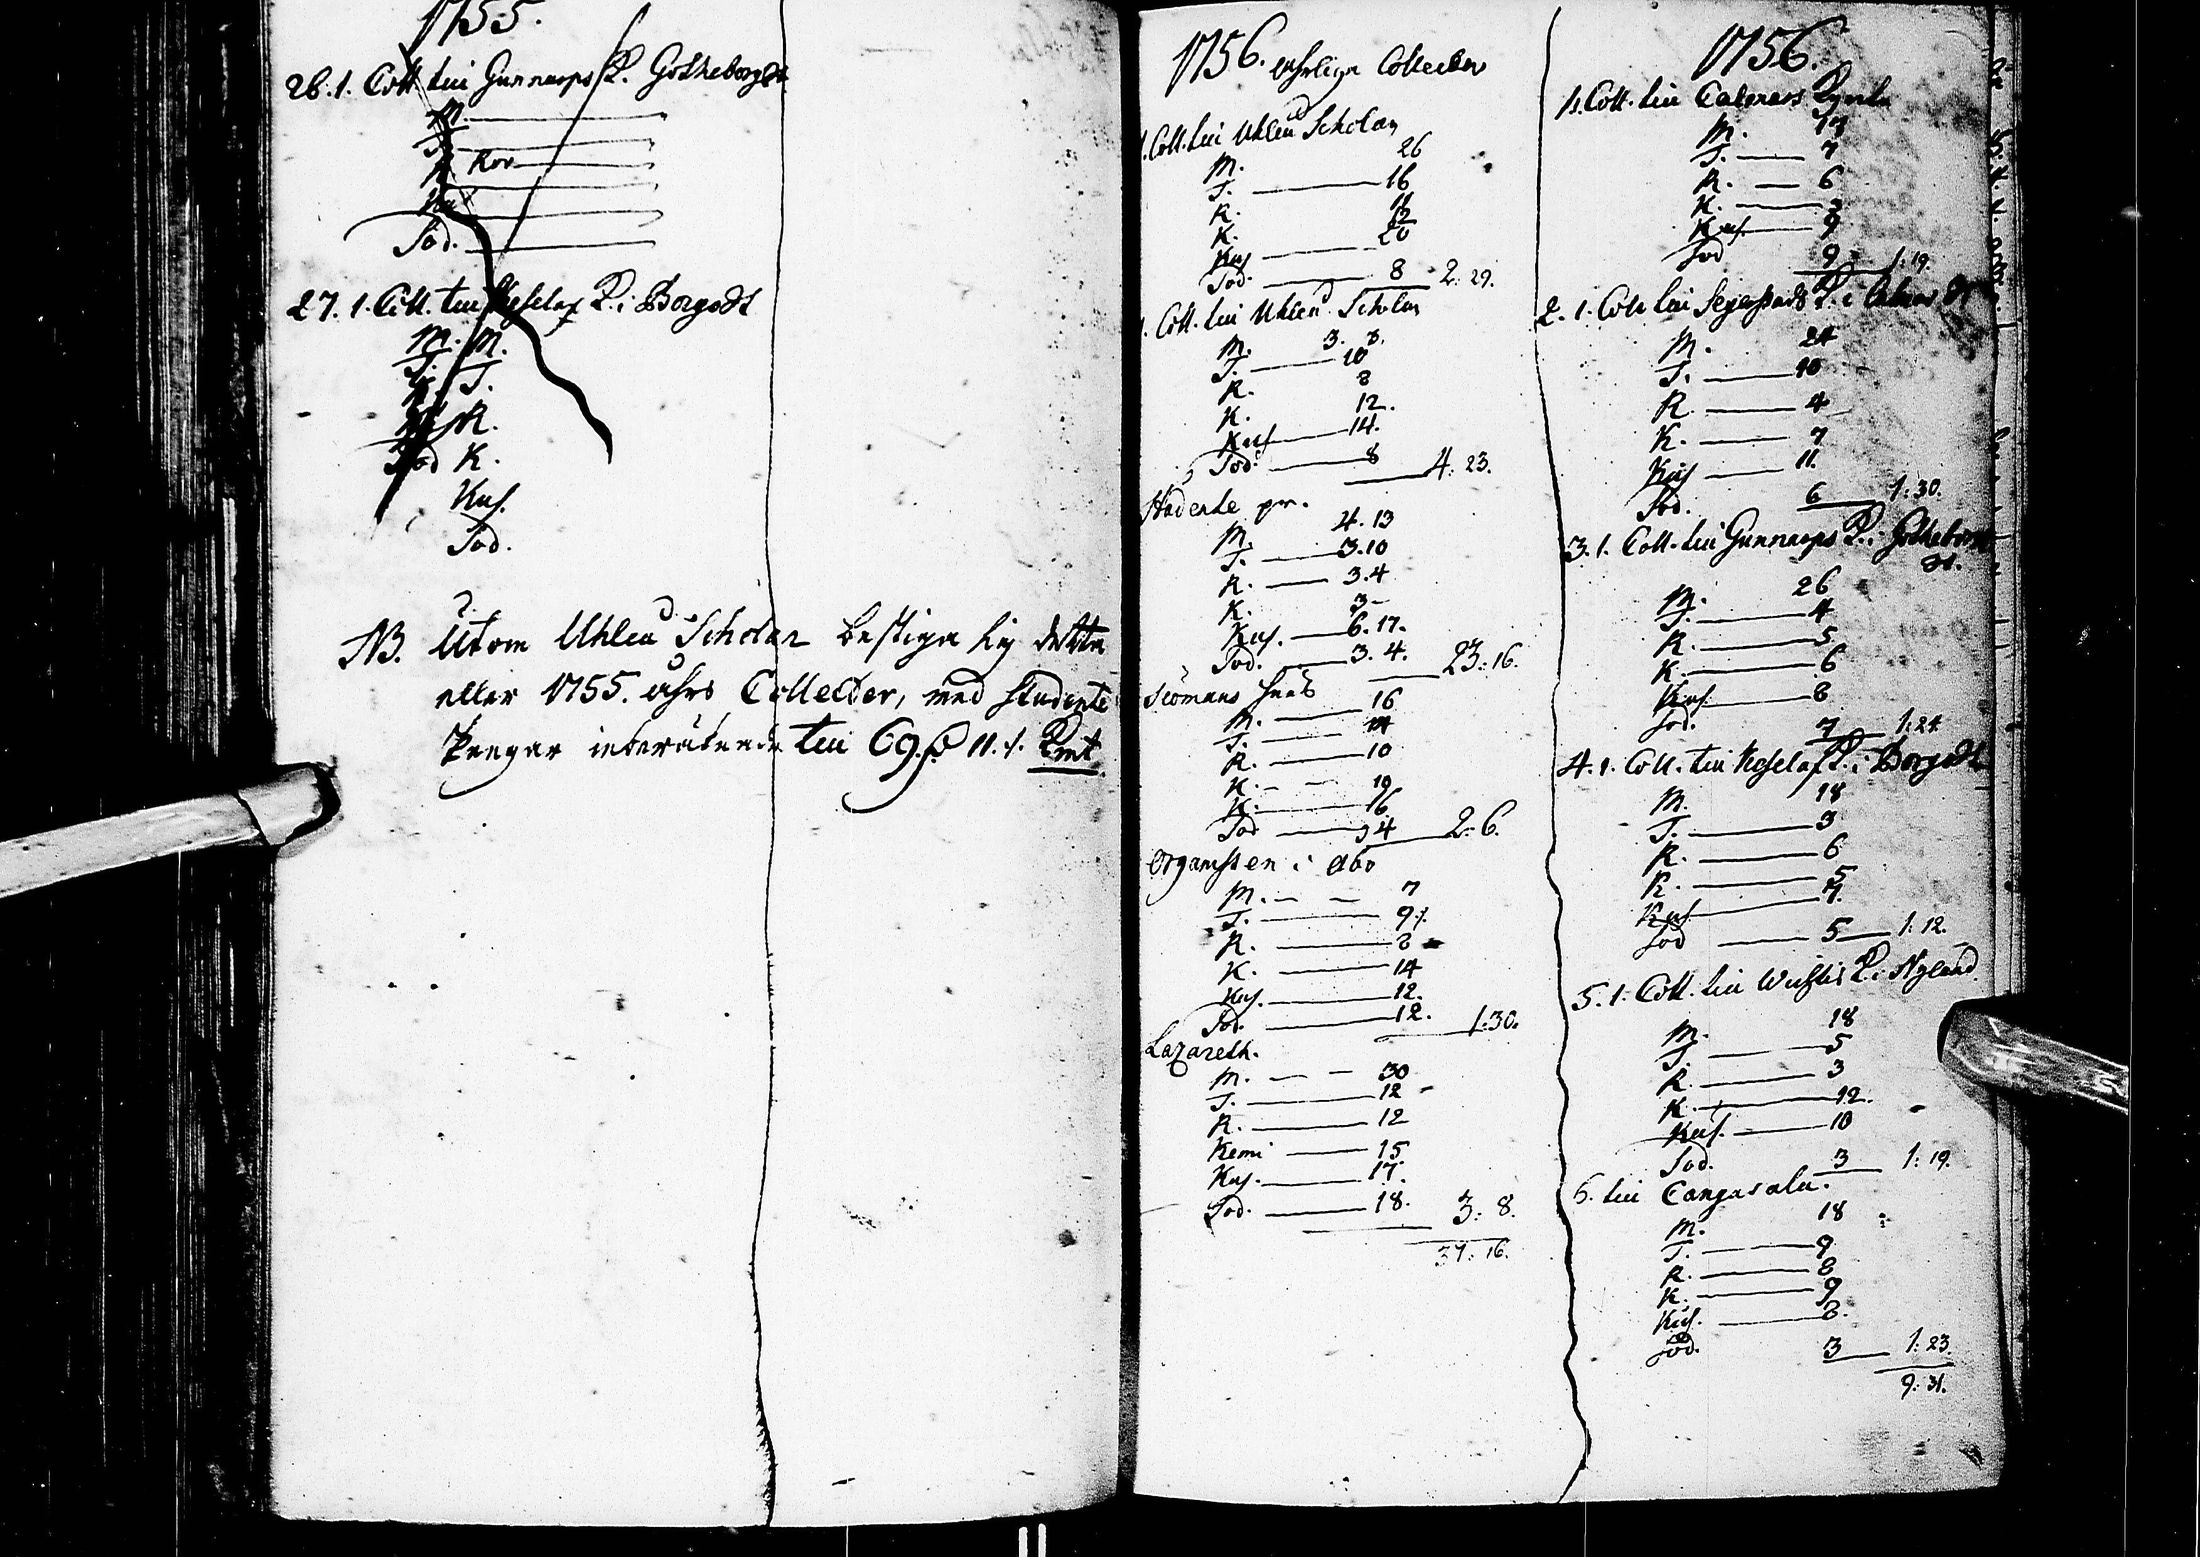 1755.
26. 1. Coll. till Gunnarps K. Götheborgs
M.
T.
R Kov
Kus
Sod.
27. 1. Coll. till Keselax K. i Borgo St
M. M.
T. T.
R.
R.
Sod K.
Kus.
Sod.
NB. Utom Uhleå Scholan bestiga sig detta
eller 1755. åhrs Collecter, med studente
Pengar inberäknade till 69. 11. Kmt.
1756. åhrliga Collecter
1. Coll. till Uhleå Scholan
M. 26
T. 16
R. 11
K. 12
Kus 20
Sod. 8 2: 29.
1. Coll. till Uhleå Scholan
M. 3. 8.
T. 10
R. 8
K. 12.
Kus 14.
Sod. 8 4: 23.
Studente pr.
M. 4. 13
T. 3. 10
R. 3. 4
K. 3-
Kus. 6. 17.
Sod. 3. 4. 23: 16.
Siömans huus
M. 16
T. 14
R. 10
K. 10
K. 16
Sod 4 2: 6.
Organisten i Åbo
M. 7
T. 9
R. 8
K. 14
Kus. 12.
Sod. 12. 1: 30.
Lazareth.
M. 30
T. 12
R. 12
Kemi 15
Kus. 17.
Sod. 18. 3: 8.
37: 16.
1756.
1. Coll. till Calmars Kyrka
M. 17
T. 7
R. 6
K. 3
Kus. 9
Sod 9 1: 19.
2. 1. Coll till Segerstads K. i Calmar St
M. 24
T. 10
R. 4
K. 7
Kus 11.
Sod. 6 1: 30.
3. 1. Coll. till Gunnarps K. i Götheborgs
St.
M. 26
T. 4
R. 5
K. 6
Kus. 8
Sod. 7 1: 24
4. 1. Coll. till Keselax K. i Borgo St
M. 18
T. 3
R. 6
K. 5
Kus. 7.
Sod 5 1: 12.
5. 1. Coll. till Wichtis K. i Nyland
M. 18
T. 5
R. 3
K. 12.
Kus. 10
Sod. 3 1: 19.
6. till Cangasala.
M. 18
T. 9
R. 8
K. 9
Kus. 8.
Sod. 3 1: 23.
9: 31.